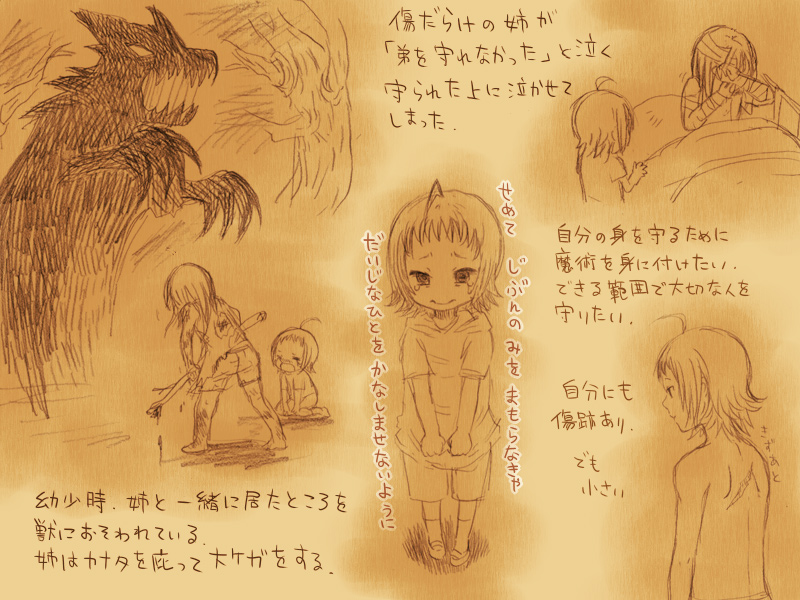 傷だらけの姉が
「弟を守れなかった」と泣く
守られた上に泣かせて
しまった.
せめて じぶんの みを まもらなきゃ
だいじなひとを かなしませないように
自分の身を守るために
魔術を身に付けたい.
できる範囲で大切な人を
守りたい.
自分にも
傷跡あり.
でも
小さい
きずあと
幼少時. 姉と一緒に居たところを
獣におそわれている.
姉はカナタを庇って大ケガをする.